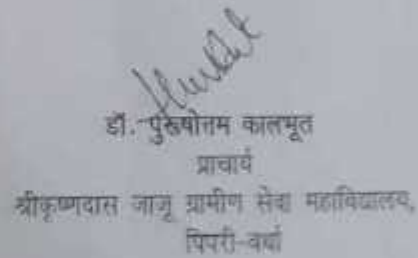 डॉ. पुरूषोत्तम कालभूत
प्राचार्य
श्रीकृष्णदास जाजू ग्रामीण सेवा महाविद्यालय,
पिपरी-वर्धा